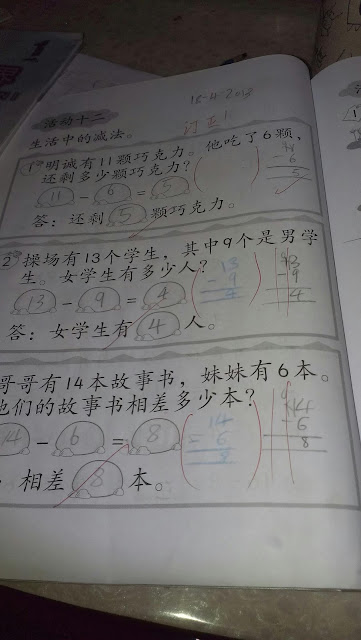 18-4-2013
活动十二
订正!
生活中的减法。
1 明诚有11颗巧克力。他吃了6颗，
还剩多少颗巧克力?
11 - 6 = 5
- 6
5
答：还剩 5 颗巧克力。
2 操场有13个学生，其中9个是男学
生。女学生有多少人?
13 - 9 = 4
13
- 9
4
13
- 9
4
答：女学生有 4 人。
哥哥有14本故事书，妹妹有6本。
他们的故事书相差多少本?
14 - 6 = 8
14
- 6
8
14
- 6
8
相差 8 本。